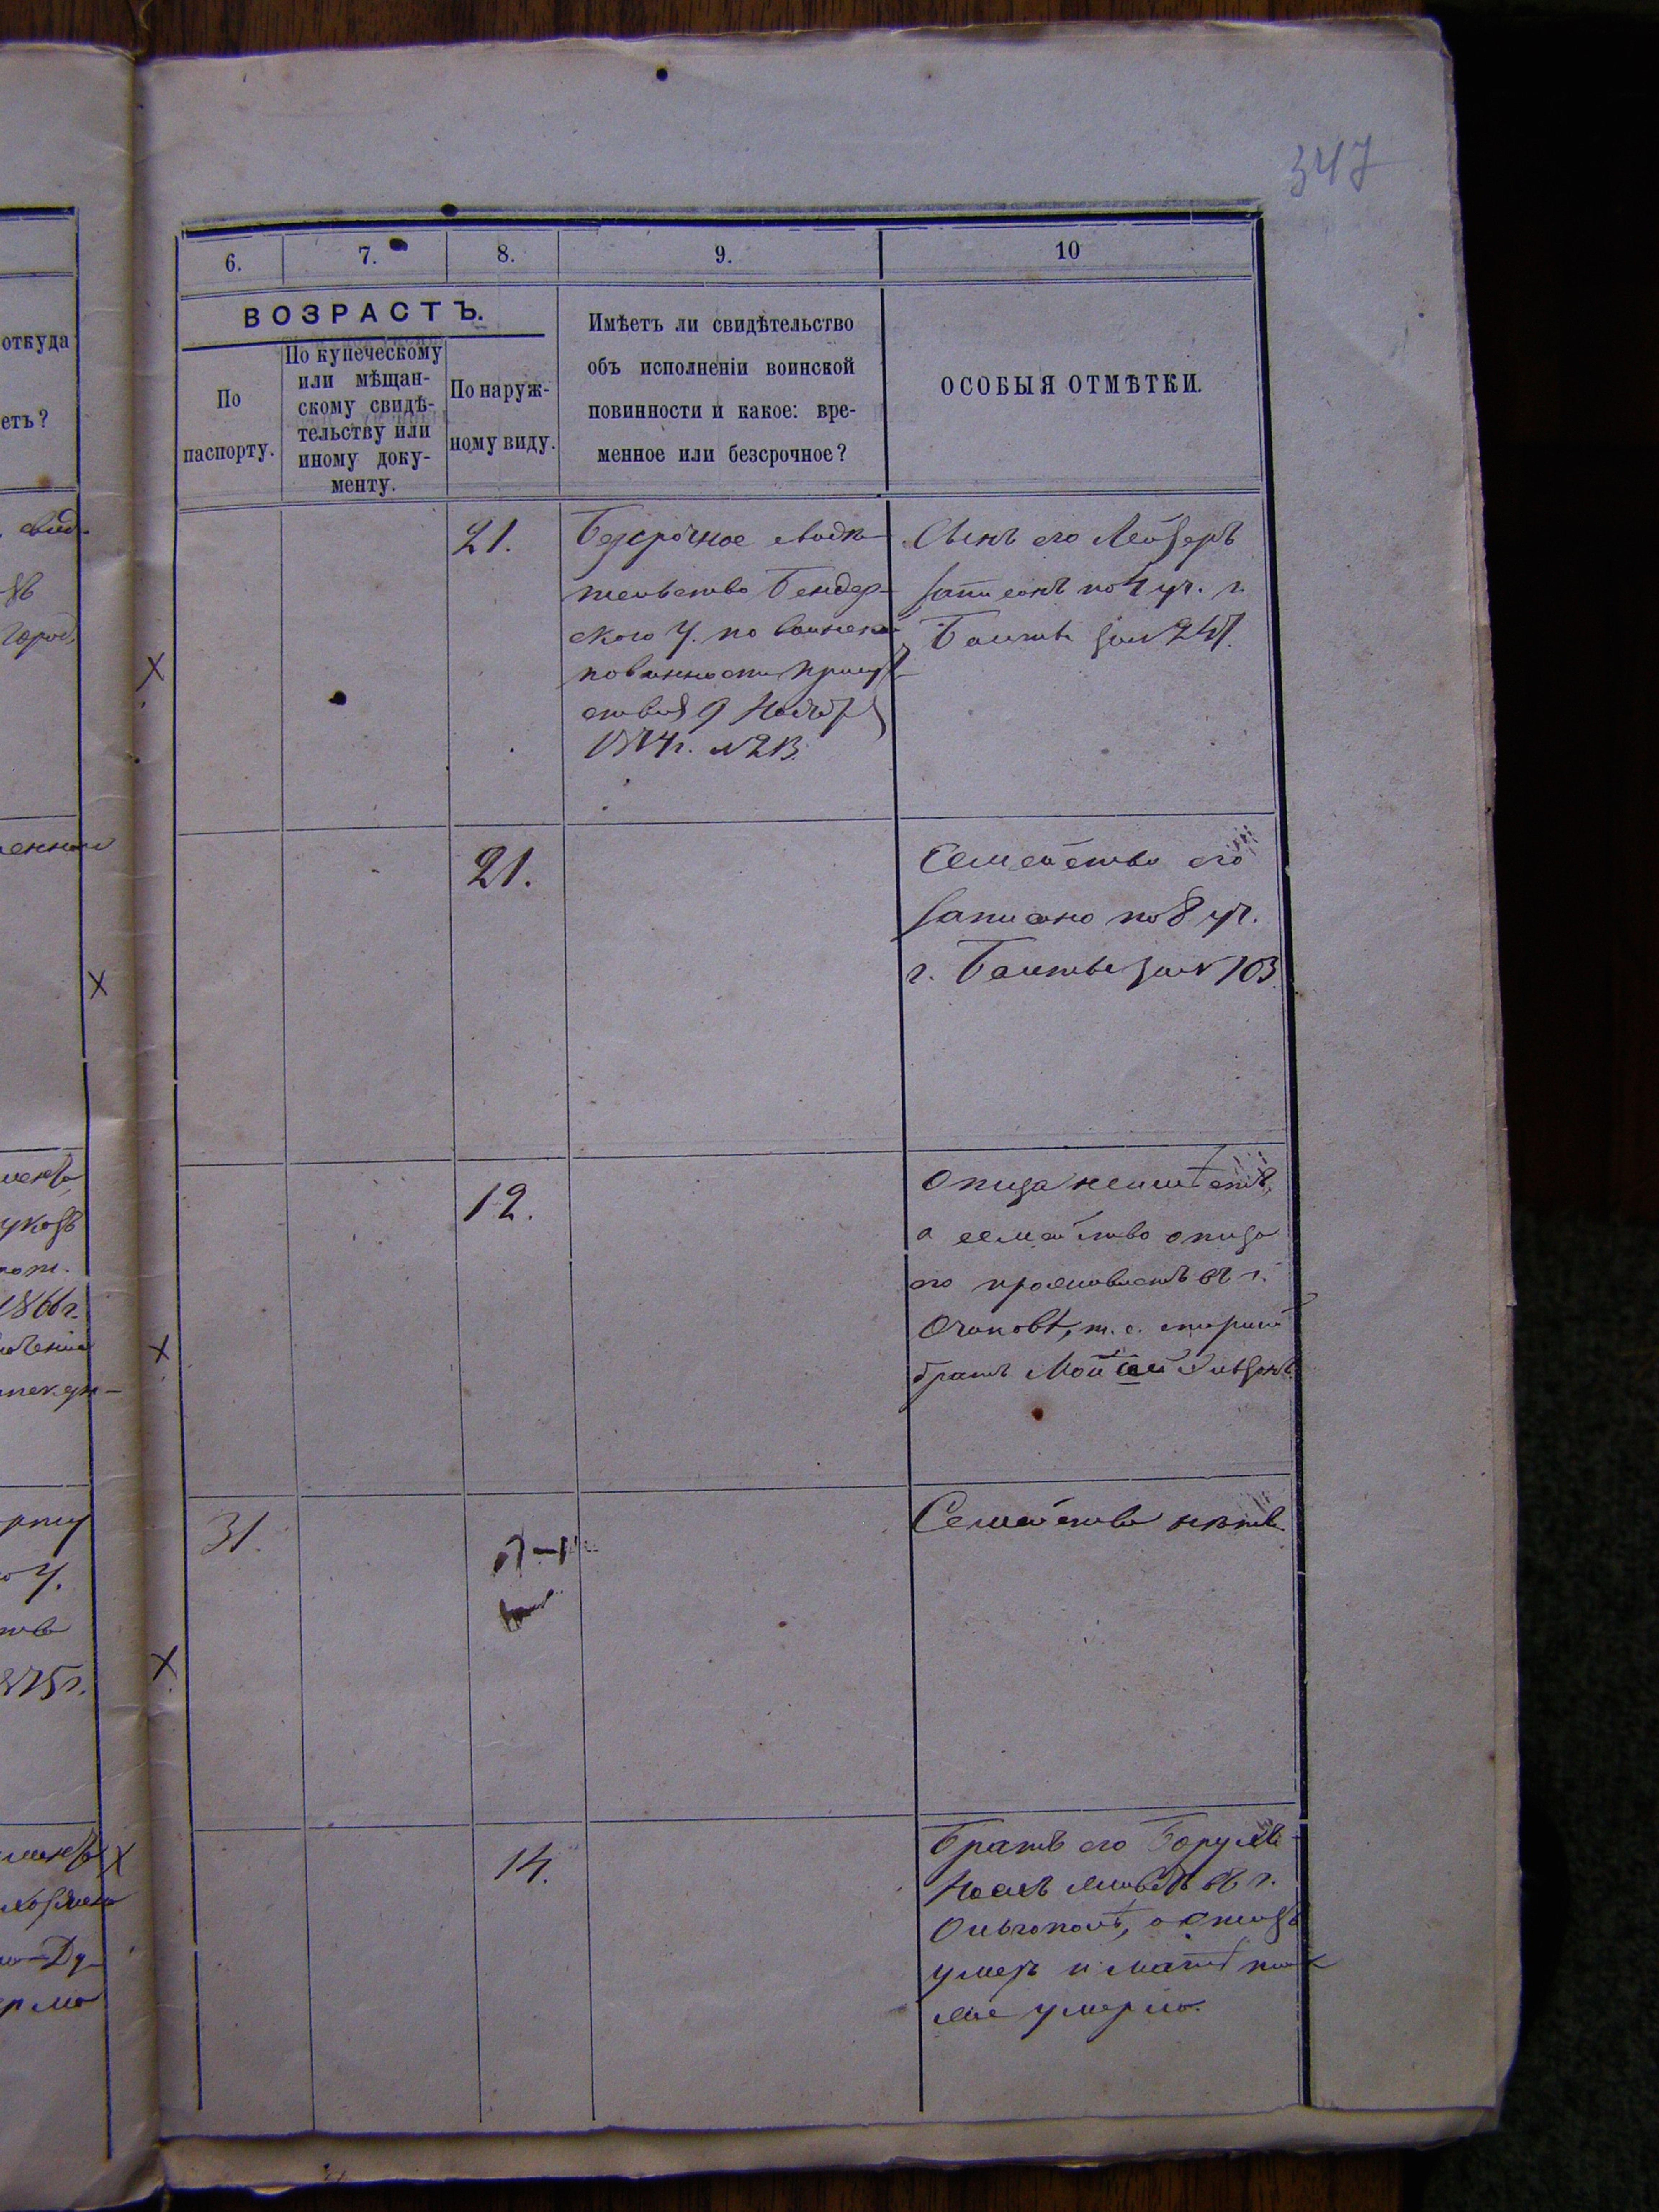 347
6.
7.
8.
9.
10
ВОЗРАСТЪ.
По
паспорту.
По купеческому
или мѣщан-
скому свидѣ-
тельству или
иному доку-
менту.
По наруж-
ному виду.
Имѣетъ ли свидѣтельство
объ исполненіи воинской
повинности и какое: вре-
менное или безсрочное?
ОСОБЫЯ ОТМѢТКИ.
откуда
етъ?
21.
Безсрочное свидѣ-
тельство Бендер-
скаго У. по воинской
повинности присут-
ствія 9 Ноября
1874 г. №213.
Сынъ его Лейзеръ
записанъ по 4 уч. г.
Балты за №247.
21.
Семейство его
записано по 8 уч.
г. Балты за № 103
12.
Отца не имѣетъ,
а семейство отца
его проживаетъ въ г.
Очаковѣ, т. е. старшій
братъ
31.
Семейства нѣтъ.
14.
Братъ его Борухъ
живетъ въ г.
Ольгополѣ, а отецъ
умеръ и мать так
же умерла.
1866 г.
875 г.